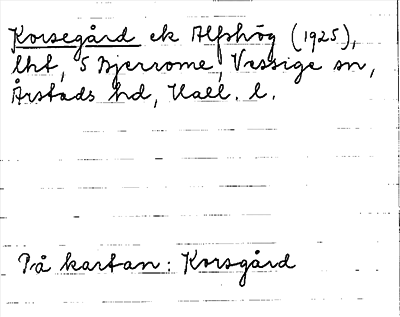 Korsegård ek Alfshög (1925),
lht, S Bjerrome, Vessige sn,
Årstads hd, Hall. l.
På kartan: Korsgård